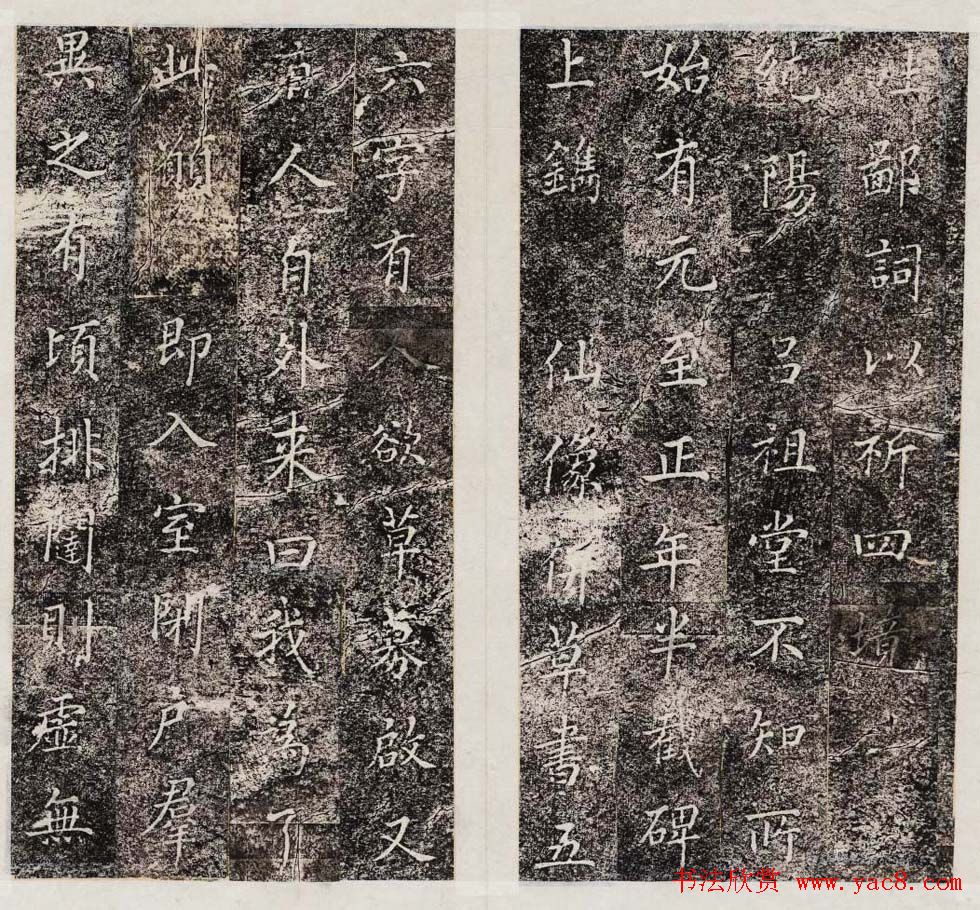 鄙詞以祈四
純陽吕祖堂不知所
始有元至正年半截碑
上鐫仙像併草書五
六字有人欲草募啟又
人自外来曰我為了
此願即入室閉户羣
異之有頃排闥則虚無
书法欣赏 www.yac8.com